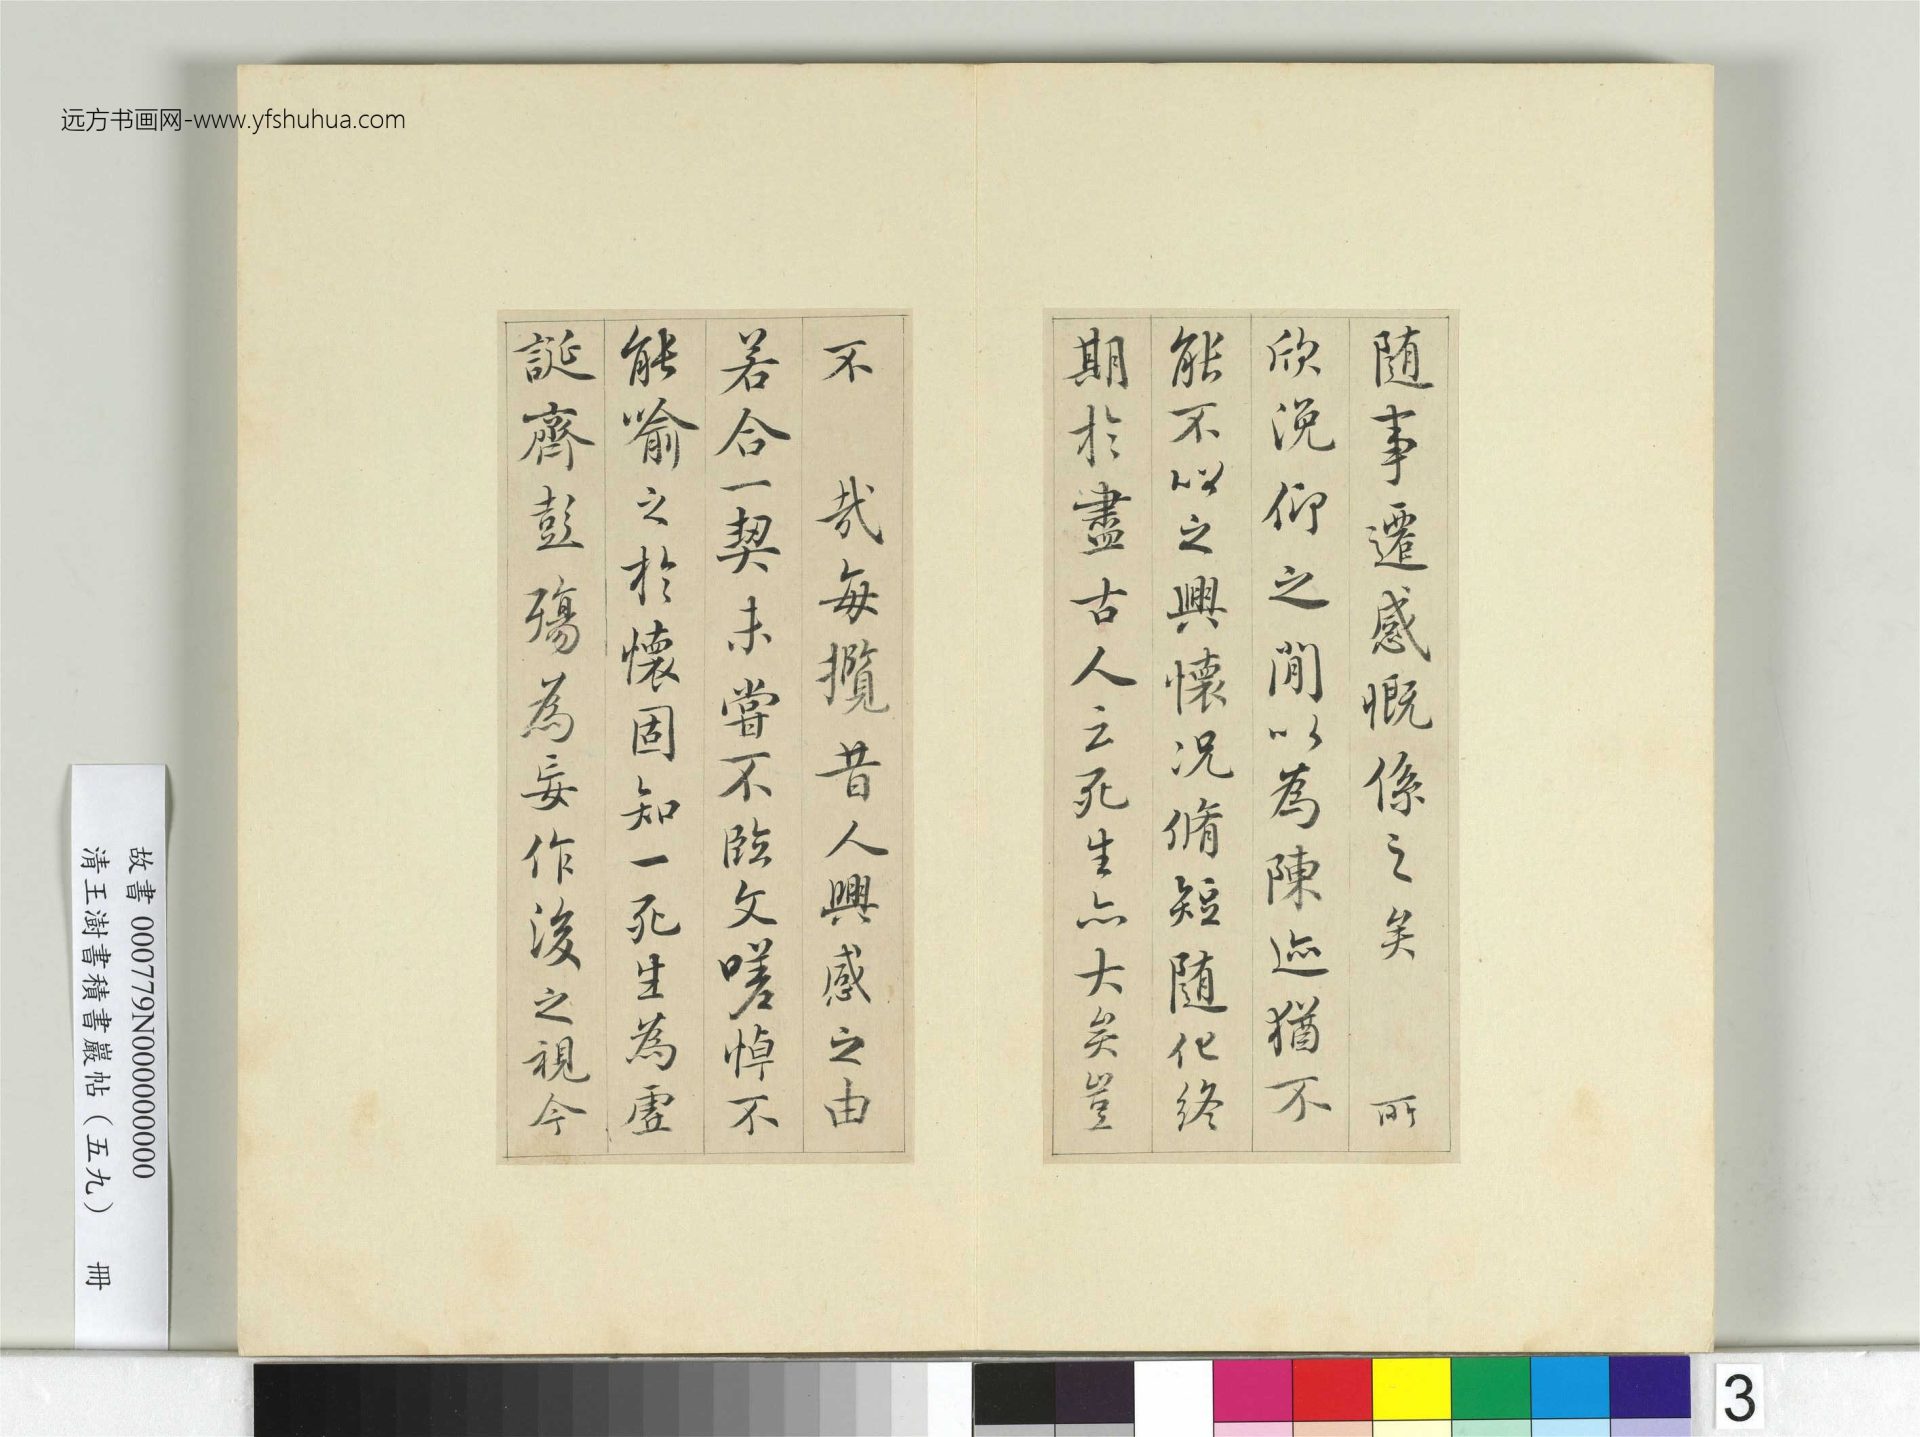 远方书画网-www.yfshuhua.com
随事遷感慨係之矣 所
欣俛仰之閒以為陳迹猶不
能不以之興懷况脩短隨化終
期於盡古人云死生亦大矣豈
不 哉每攬昔人興感之由
若合一契未嘗不臨文嗟悼不
能喻之於懷固知一死生為虛
誕齊彭殤為妄作後之視今
故書 000779N000000000
清王澍書積書巖帖（五九） 冊
3